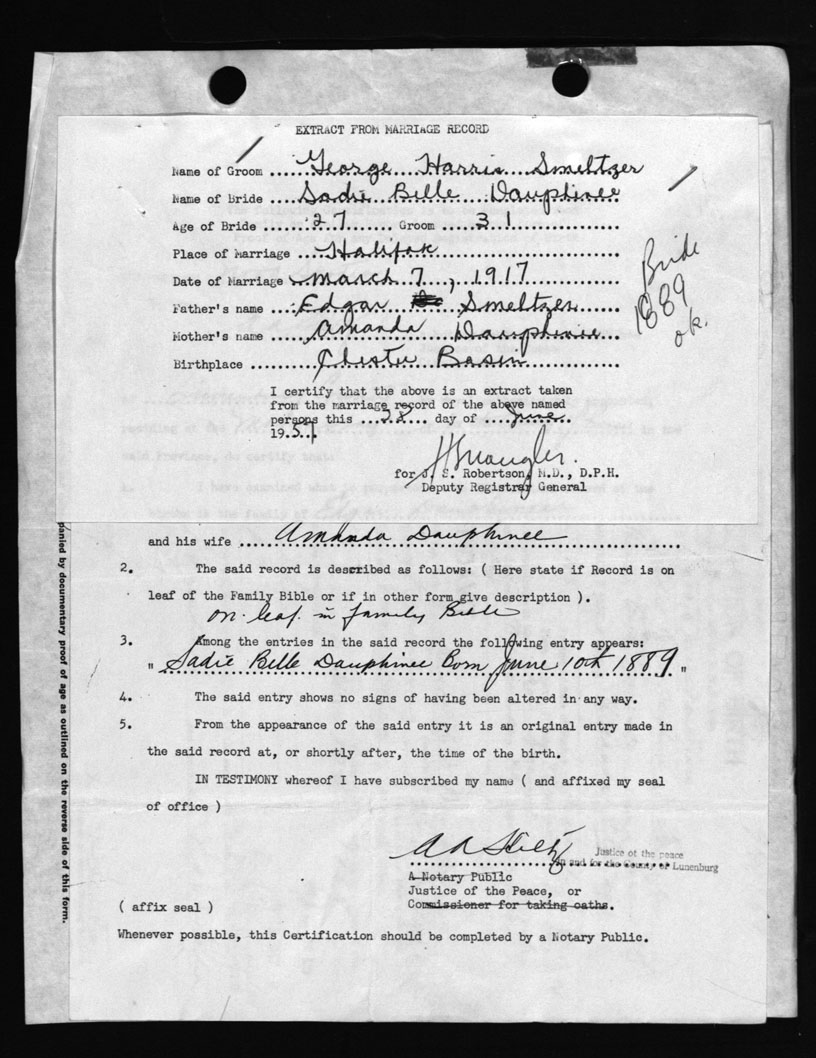 EXTRACT FROM MARRIAGE RECORD
Name of Groom ..... George Harris Smeltzer
Name of Bride ..... Sadie Belle Dauphinee
Age of Bride ..... 27 ..... Groom ..... 31
Place of Marriage ... Halifax
Date of Marriage March 7, 1917
Father's name ... Edgar Smeltzer
Mother's name ... Amanda Dauphinee
Birthplace ..... Chester Basin
Bride
1889
ok.
I certify that the above is an extract taken
from the marriage record of the above named
persons this ... 28 ... day of ... June
1957.
for J. S. Robertson, M.D., D.P.H.
Deputy Registrar General
and his wife Amanda Dauphinee
2. The said record is described as follows: ( Here state if Record is on
leaf of the Family Bible or if in other form give description ).
on leaf in family Bible
3. Among the entries in the said record the following entry appears:
" Sadie Belle Dauphinee Born June 10th 1889 "
4. The said entry shows no signs of having been altered in any way.
5. From the appearance of the said entry it is an original entry made in
the said record at, or shortly after, the time of the birth.
IN TESTIMONY whereof I have subscribed my name ( and affixed my seal
of office )
Justice of the peace
in and for the County of Lunenburg
A Notary Public
Justice of the Peace, or
Commissioner for taking oaths.
( affix seal )
Whenever possible, this Certification should be completed by a Notary Public.
panied by documentary proof of age as outlined on the reverse side of this form.